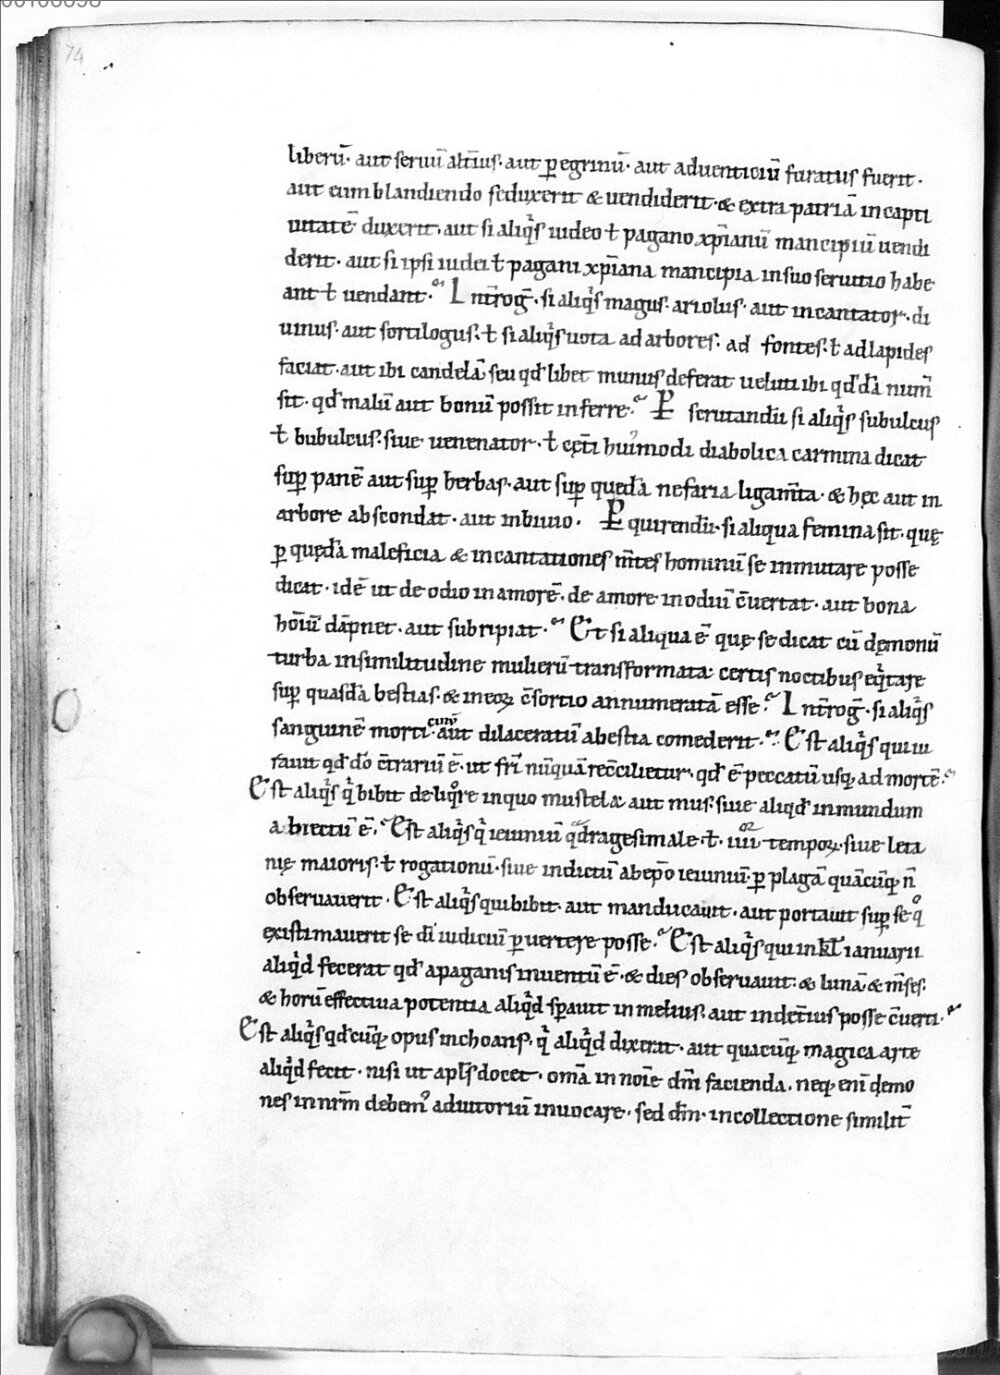 74
liberū· aut seruū alt̄ius· aut ꝑegrinū· aut aduenticiū furatus fuerit·
aut eum blandiendo seduxerit & uendiderit· & extra patriā in capti
uitatē duxerit· aut si aliq̄s iudeo ł pagano xp̄ianū mancipiū uendi
derit· aut si ipsi iudei ł pagani xp̄iana mancipia in suo seruitio habe
ant ł uendant· Int̄roḡ· si aliq̄s magus· ariolus· aut incantator· di
uinus· aut sortilogus· ł si aliq̄s uota ad arbores· ad fontes· ł ad lapides
faciat· aut ibi candelā seu qd̄ libet munus deferat ueluti ibi qd̄dā num̄
sit· qd̄ malū aut bonū possit inferre· Ꝑ scrutandū si aliq̄s subulcus
ł bubulcus· siue uenenator· ł cęt̄i hui᾿modi diabolica carmina dicat
suꝑ panē aut suꝑ herbas· aut suꝑ quędā nefaria ligam̄ta· & hęc aut in
arbore abscondat· aut in biuio· Ꝑ quirendū· si aliqua femina sit· quę
ꝑ quędā maleficia & incantationes m̄tes hominū se inmutare posse
dicat· idē ut de odio in amorē· de amore in odiū c̄uertat· aut bona
hōiū dāpnet· aut subripiat· Et si aliqua ē quę se dicat cū dęmonū
turba in similitudine mulierū transformata· certis noctibus eq̇tare
suꝑ quasdā bestias· & in eoꝝ c̄sortio annumeratā esse· Int̄roḡ· si aliq̄s
sanguinē morti cin᾿ aut dilaceratū a bestia comederit· Est aliq̄s qui iu
rauit qd̄ dō c̄trariū ē· ut fr̄i nūquā rec̄cilietur· qd̄ ē peccatū usq; ad mortē·
Est aliq̄s q̇ bibit de liq̊re in quo mustela aut mus· siue aliqd̄ inmundum
abiectū ē· Est aliq̄s q̇ ieiuniū q̄dragesimale· ł· iiii᷒ᵒʳ tempoꝝ· siue leta
nię maioris· ł rogationū· siue indictū ab ep̄o ieiuniū· ꝑ plagā quācūq; n̄
obseruauerit· Est aliq̄s qui bibit· aut manducauit· aut portauit suꝑ se q̊
existimauerit se dī iudiciū ꝑuertere posse· Est aliq̄s qui in kł ianuarii
aliqd̄ fecerat qd̄ a paganis inuentū ē· & dies obseruauit· & lunā & m̄ses·
& horū effectiua potentia aliqd̄ sꝑauit in melius· aut in det̄ius posse c̄uerti·
Est aliq̄s qd̄cūq; opus inchoans· q̇ aliqd̄ dixerat· aut quacūq; magica arte
aliqd̄ fecit· nisi ut apl̄s docet· om̄a in noīe dn̄i facienda· neq; enī dęmo
nes in nr̄m debem᾿ adiutoriū inuocare· sed dm̄· in collectione similit̄